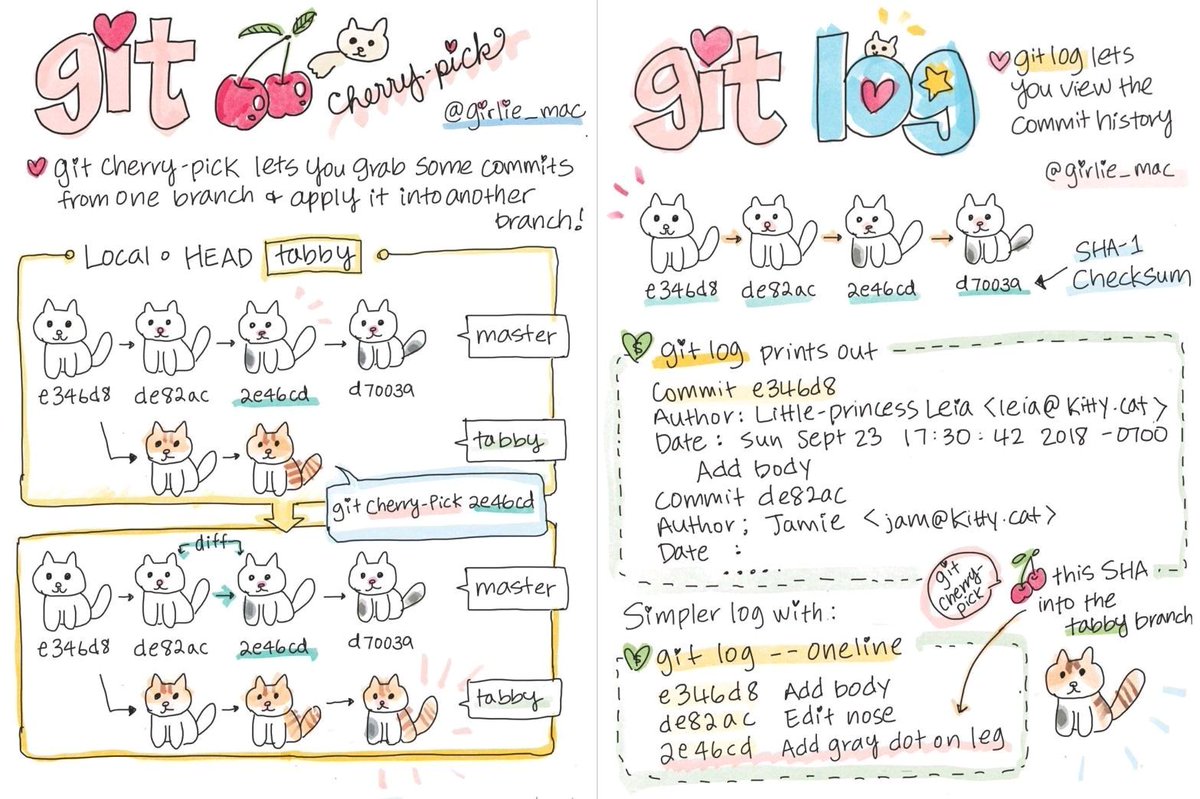 git cherry-pick
@girlie_mac
git cherry-pick lets you grab some commits
from one branch & apply it into another
branch!
Local HEAD tabby
master
e346d8 de82ac 2e46cd d7003a
tabby
git cherry-pick 2e46cd
diff
master
e346d8 de82ac 2e46cd d7003a
tabby
git log
git log lets
you view the
commit history
@girlie_mac
e346d8 de82ac 2e46cd d7003a
SHA-1
Checksum
$ git log prints out
Commit e346d8
Author: Little-princess Leia <leia@kitty.cat>
Date: Sun Sept 23 17:30:42 2018 -0700
Add body
Commit de82ac
Author; Jamie <jam@kitty.cat>
Date :
.....
git
cherry-
pick
this SHA
into the
tabby branch
Simpler log with:
$ git log --oneline
e346d8 Add body
de82ac Edit nose
2e46cd Add gray dot on leg